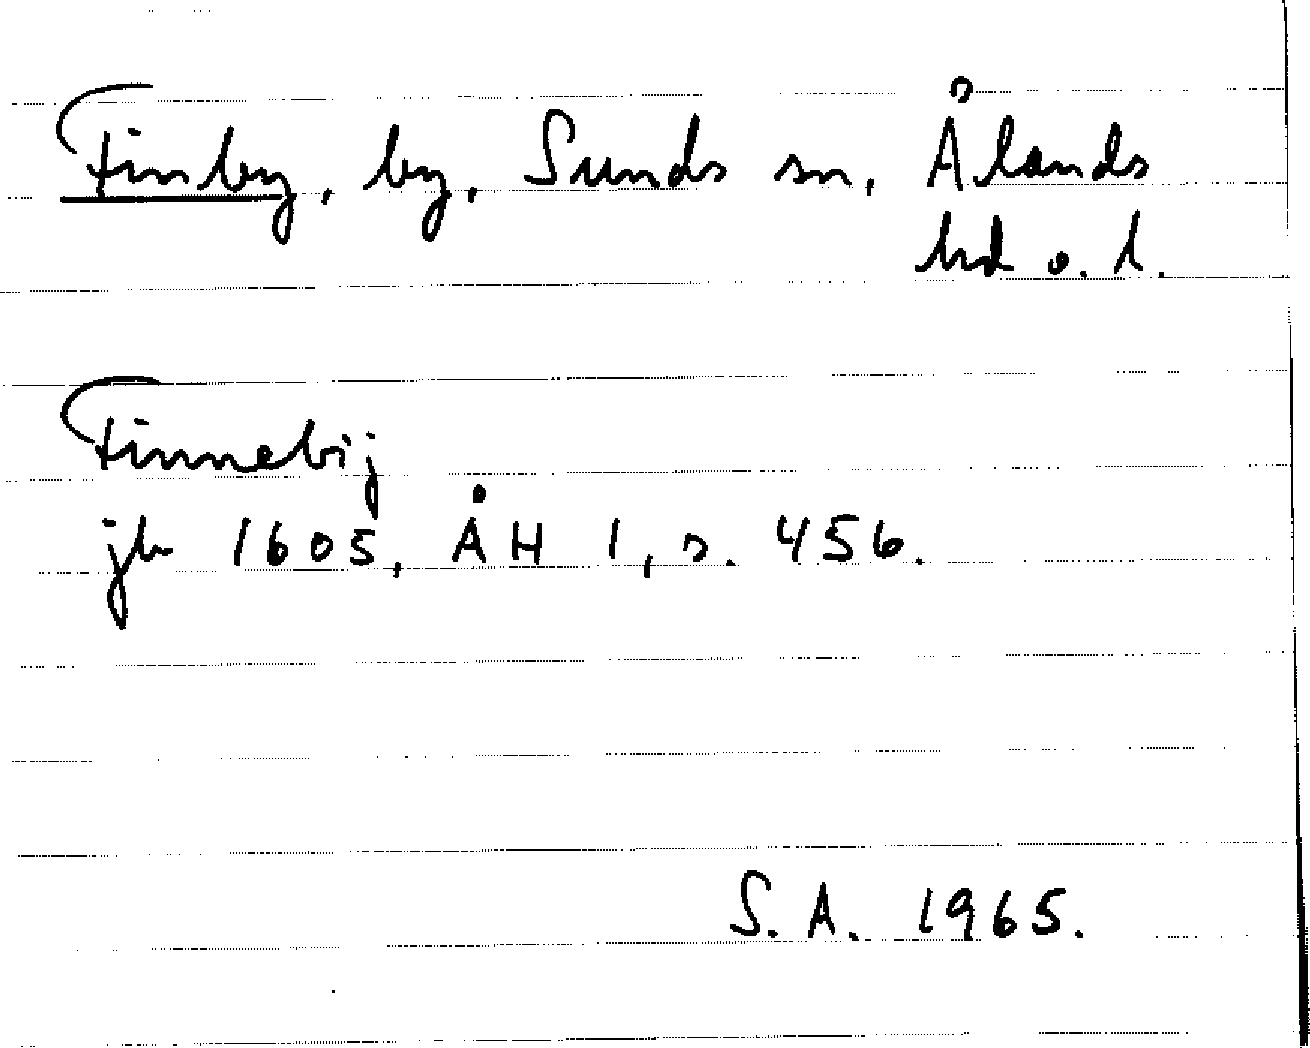 Finby, by, Sunds sn, Ålands
hd o. l.
Finnebij
jb 1605, ÅH 1, s. 456.
S.A. 1965.